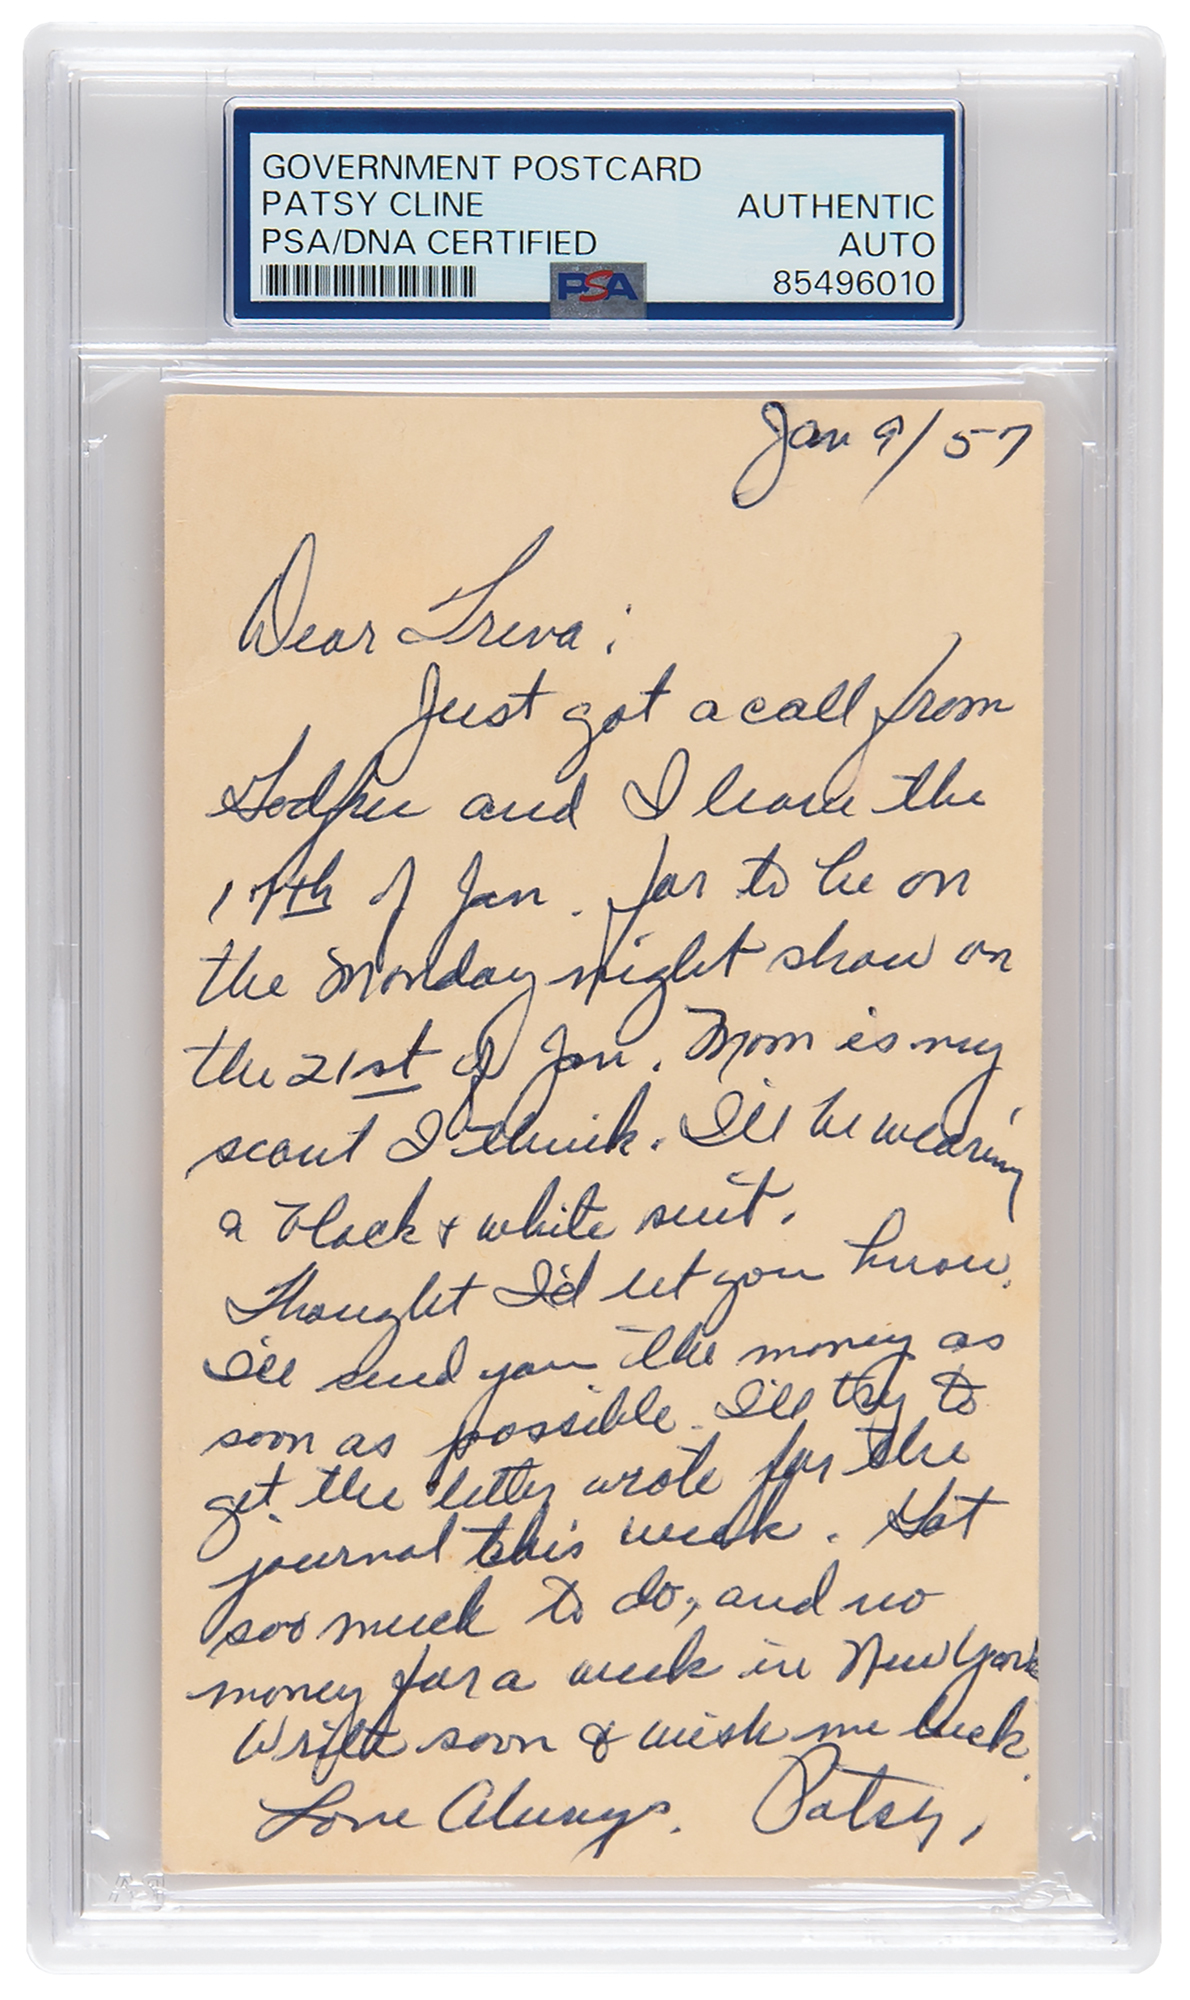 GOVERNMENT POSTCARD
PATSY CLINE
PSA/DNA CERTIFIED
AUTHENTIC
AUTO
85496010
PSA
Jan 9/57
Dear Treva:
Just got a call from
Godfrey and I leave the
17th of Jan. for to be on
the Monday night show on
the 21st of Jan. Mom is my
scout I think. I'll be wearing
a black & white suit.
Thought I'd let you know.
I'll send you the money as
soon as possible. I'll try to
get the letter wrote for the
journal this week. Got
soo much to do, and no
money for a week in New York
Write soon & wish me luck.
Love Always. Patsy,